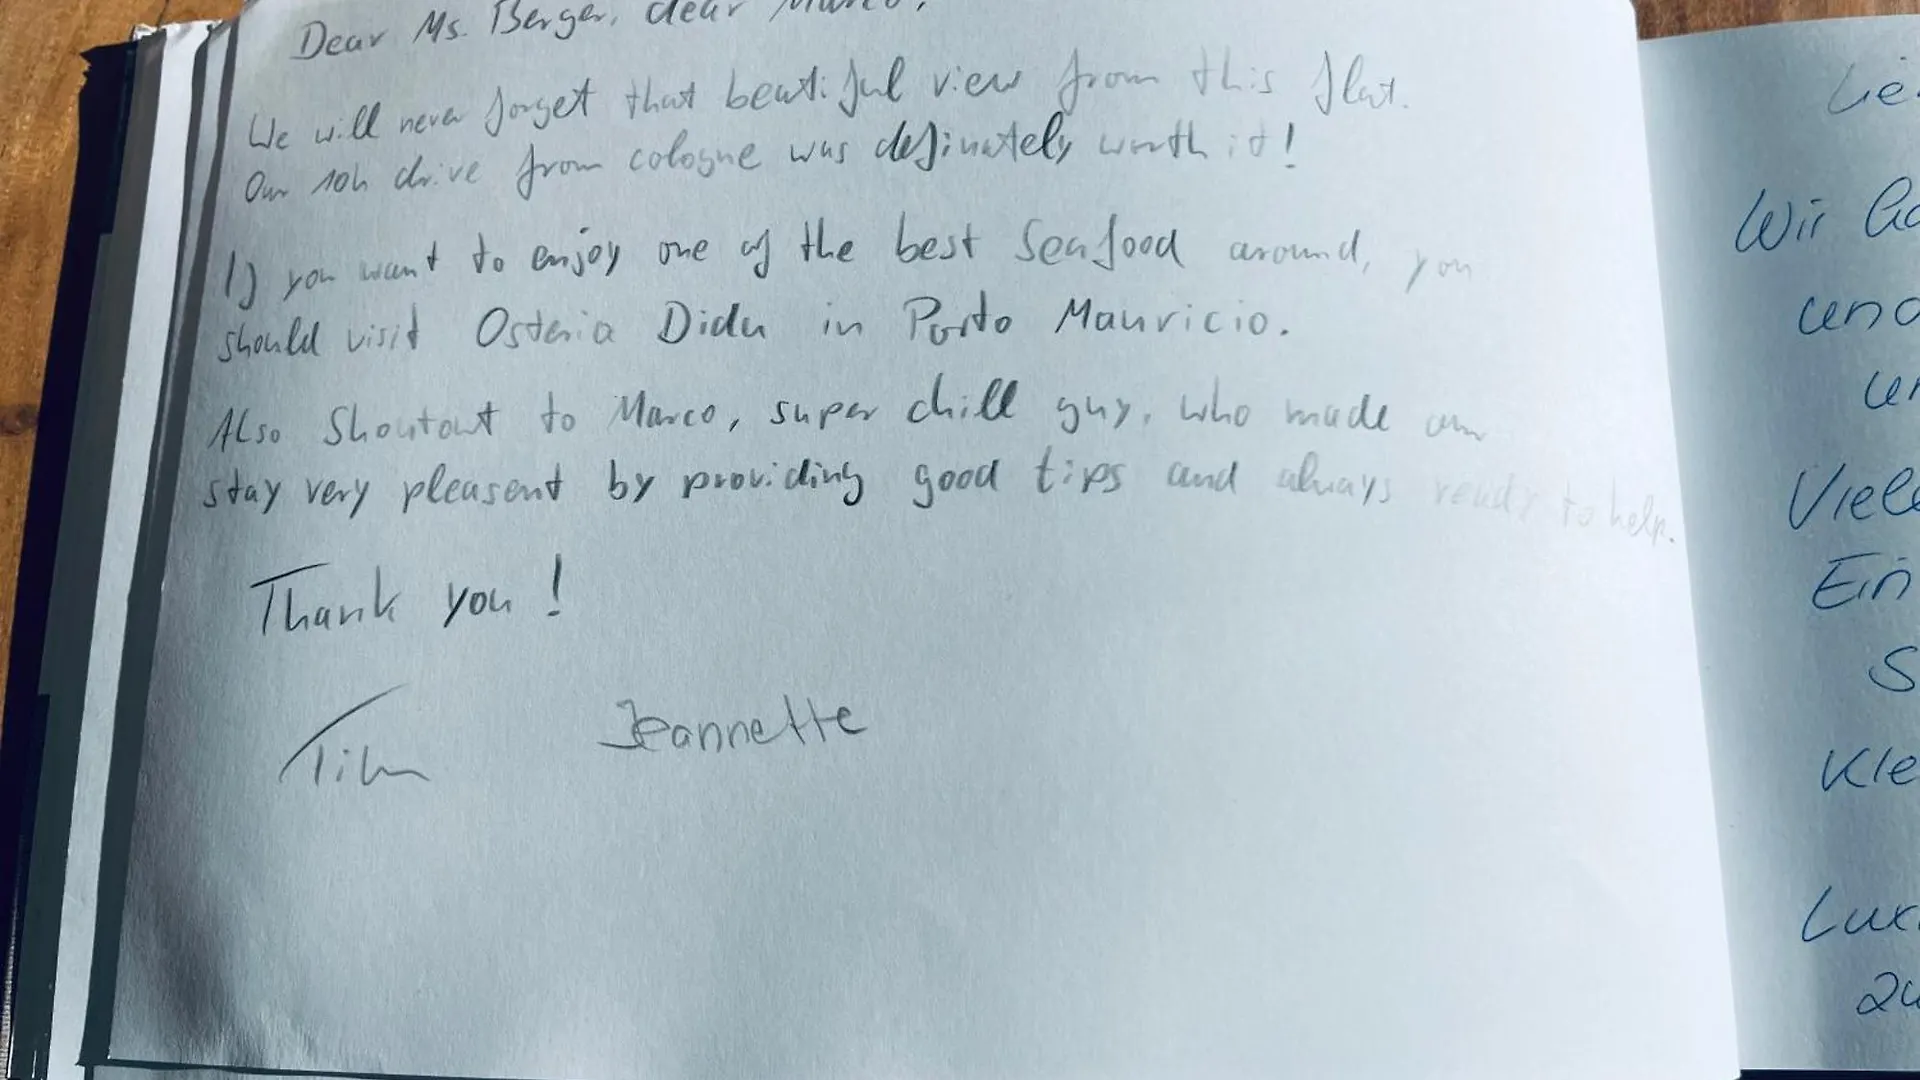 Dear Ms. Berger, dear Marco,
We will never forget that beatiful view from this flat.
Our 10h drive from cologne was definately worth it!
If you want to enjoy one of the best Seafood around, you
should visit Osteria Didu in Porto Mauricio.
Also Shoutout to Marco, super chill guy, who made our
stay very pleasent by providing good tips and always ready to help.
Thank you!
Tim Jeannette
Wir
und
Viele
Ein